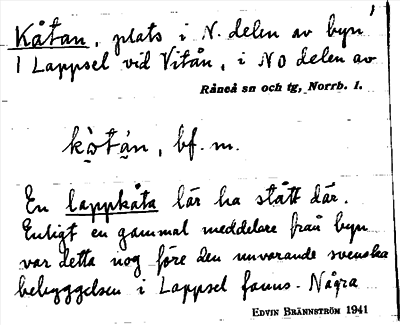 Kåtan, plats i N. delen av byn
Lappsel vid Vitån, i NO delen av
Råneå sn och tg, Norrb. l.
kò̦tạn, bf. m.
En lappkåta lär ha stått där.
Enligt en gammal meddelare från byn
var detta nog före den nuvarande svenska
bebyggelsen i Lappsel fanns. Några
EDVIN BRÄNNSTRÖM 1941